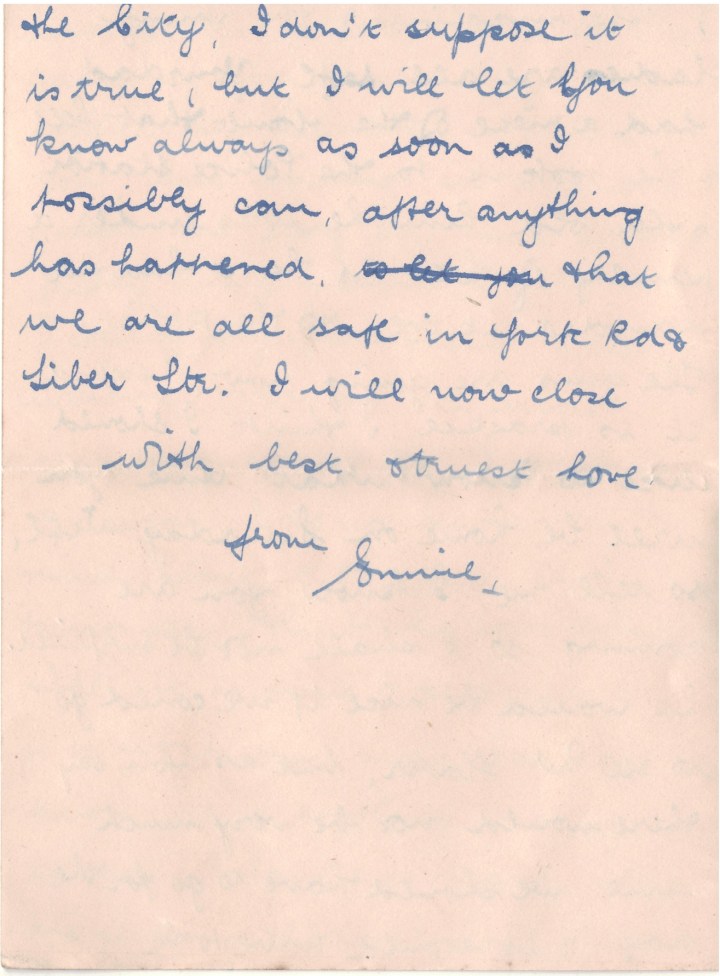 the City, I don't suppose it
is true, but I will let you
know always as soon as I
possibly can, after anything
has happened, to let you that
we are all safe in York Rd &
Tiber Str. I will now close
with best & truest love
from
Ennie